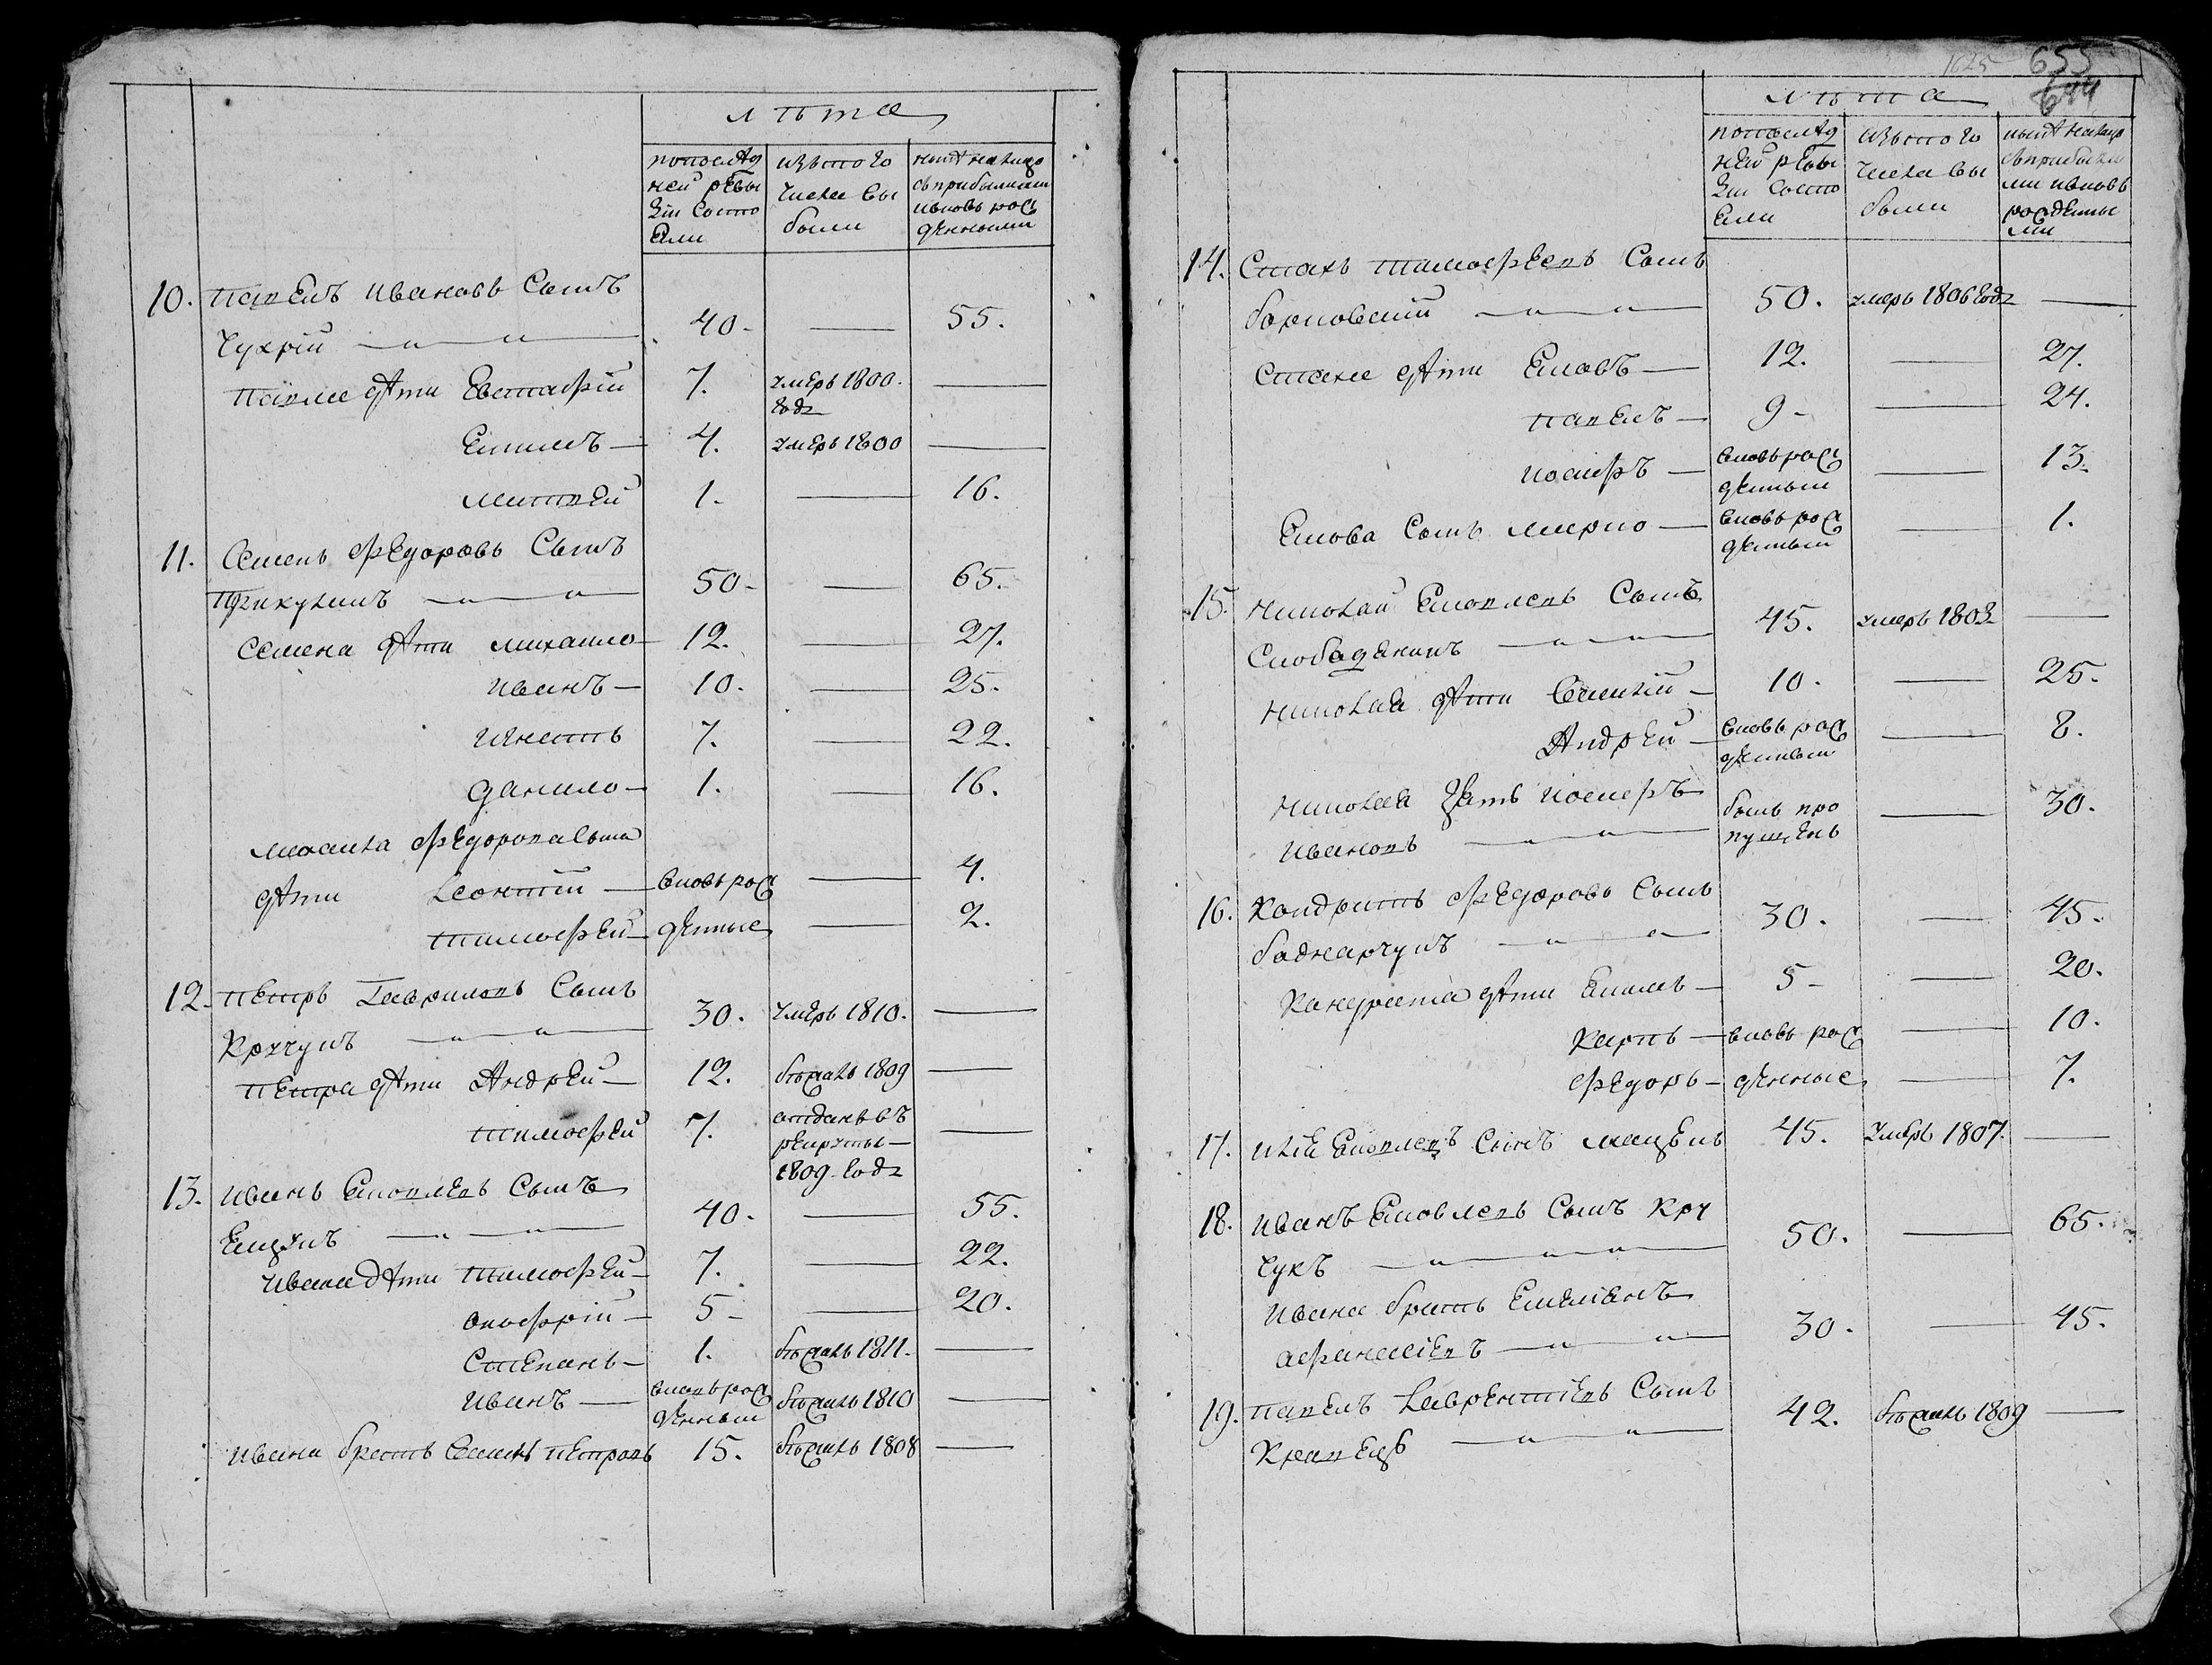 лѣта
попослѣд
ней ревы
зіи состо
яли
изъ того
числа вы
были
нынѣ налицо
съ прибылыми
ивновь рож
денными
10. павелъ ивановъ сынъ
Чухрій 40. 55.
павла дѣти Евстафій 7. умеръ 1800.
года
Якимъ 4. умеръ 1800
матвей 1. 16.
11. Семенъ федоровъ сынъ
50. 65.
Семена дѣти михайло 12. 27.
иванъ 10. 25.
игнатъ 7. 22.
данило 1. 16.
михайла федорова сына
дѣти леонтій вновь рож 4.
тимофей денные 2.
12. петръ гавриловъ сынъ
Кручукъ 30. умеръ 1810.
петра дѣти Андрей 12. бѣжалъ 1809
тимофей 7. отданъ въ
рекруты
1809 года
13. иванъ Яковлевъ сынъ
40. 55.
ивана дѣти тимофей 7. 22.
онофрій 5. 20.
степанъ 1. бѣжалъ 1811.
иванъ вновь рож бѣжалъ 1810
денный
ивана братъ василь петровъ 15. бѣжалъ 1808
1625 655
644
лѣта
попослѣд
ней ревы
зіи состо
яли
изъ того
числа вы
были
нынѣ налицо
съ прибылы
ми ивновь
рожденны
ми
14. Стахъ тимофеевъ сынъ
барновскій 50. умеръ 1806 года
Стаха дѣти Яковъ 12. 27.
павелъ 9. 24.
иосифъ вновь рож 13.
денный
Якова сынъ марко вновь рож 1.
денный
15. николай Яковлевъ сынъ
Слободяникъ 45. умеръ 1803
николая дѣти василій 10. 25.
Андрей вновь рож 8.
денный
николая зять иосифъ былъ про 30.
ивановъ пущенъ
16. Кондратъ федоровъ сынъ
боднарчукъ 30. 45.
Кандрата дѣти Якимъ 5. 20.
Карпъ вновь рож 10.
федоръ денные 7.
17. илія Яковлевъ сынъ 45. умеръ 1807.
18. иванъ Яковлевъ сынъ Кру
чукъ 50. 65.
ивана братъ Емеліянъ
афанасіевъ 30. 45.
19. павелъ лаврентіевъ сынъ
Кравецъ 42. бѣжалъ 1809